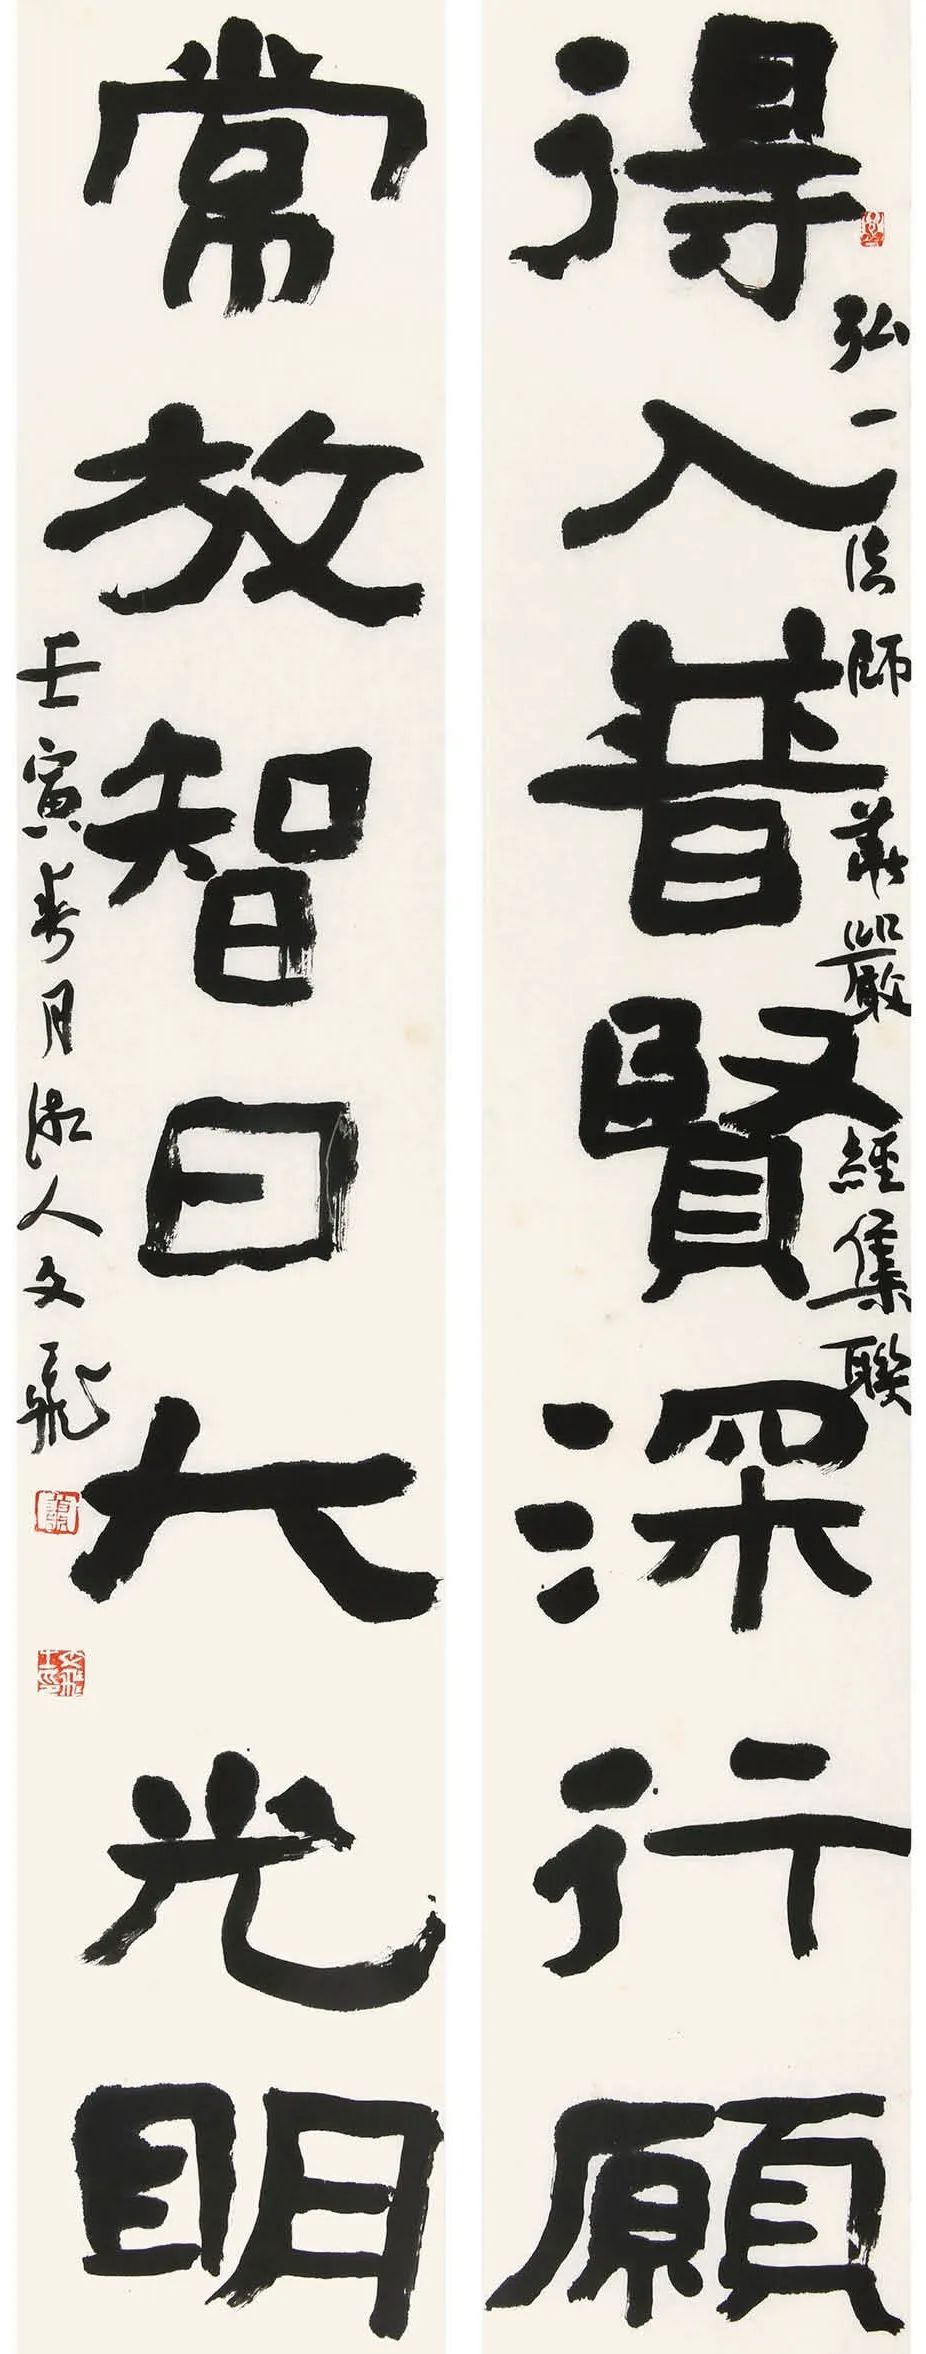 得入普賢深行願
弘一法師華嚴經集聯
常放智日大光明
壬寅春月湘人文飛